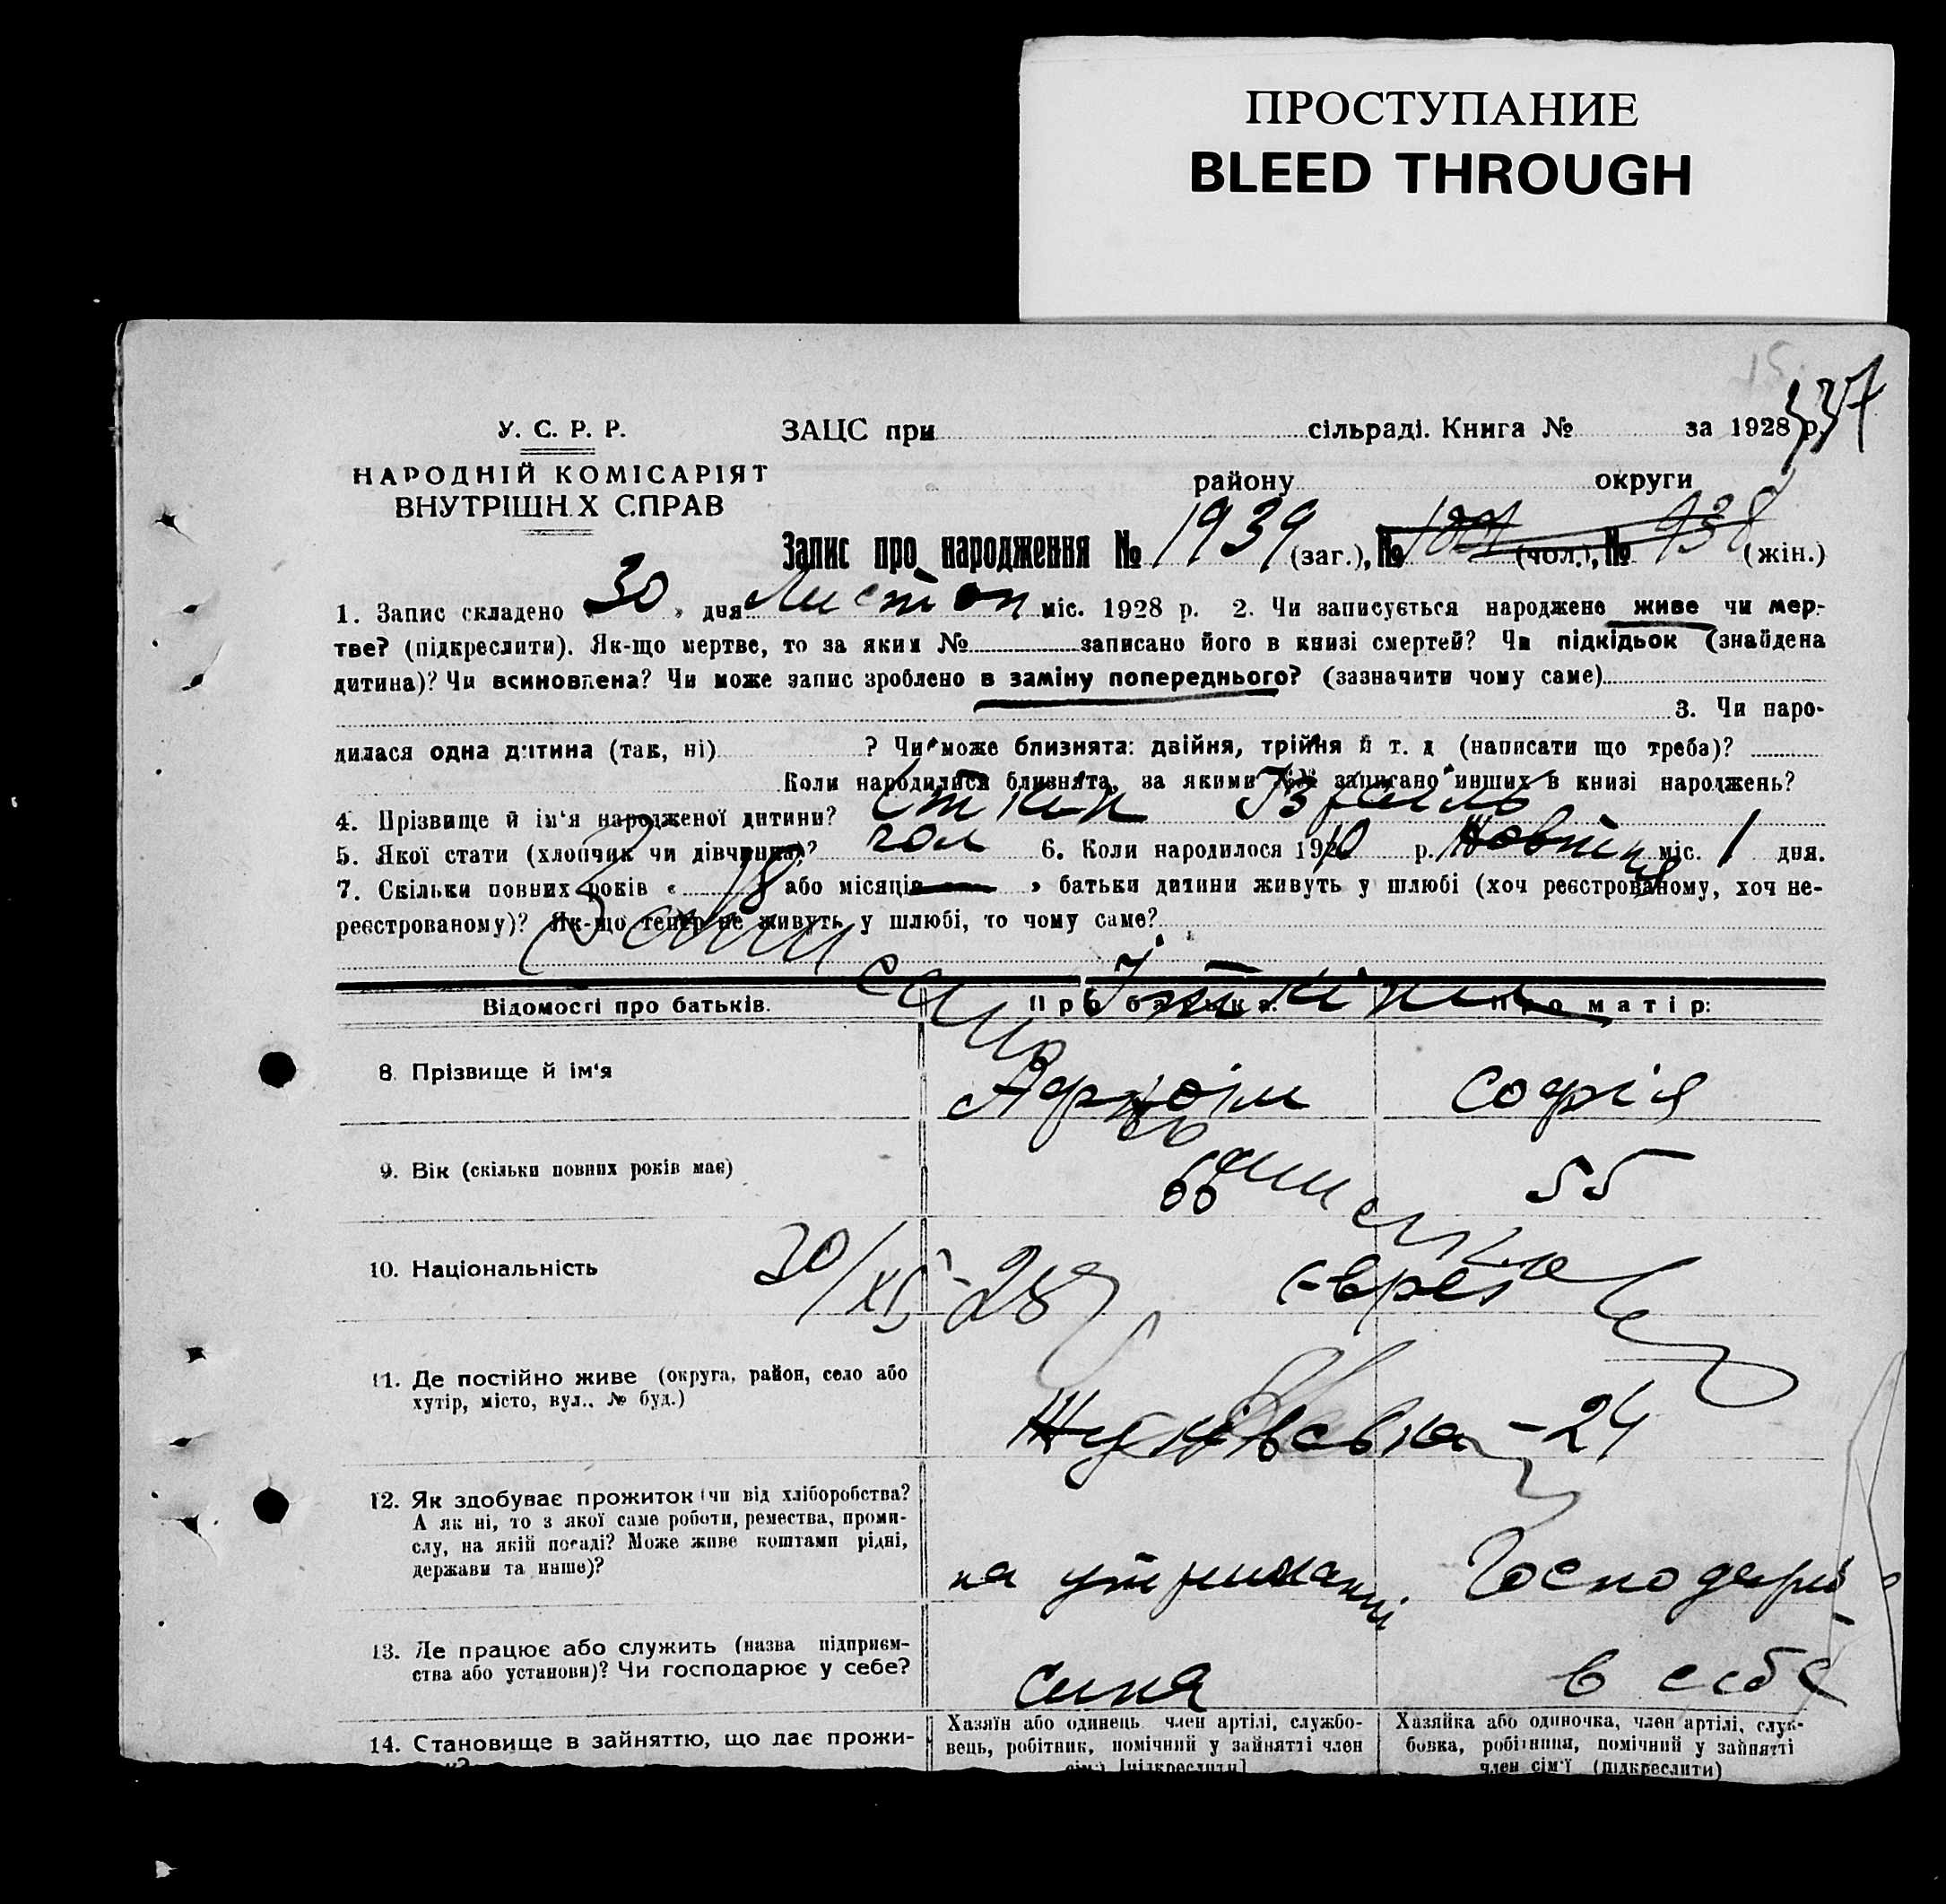 ПРОСТУПАНИЕ
BLEED THROUGH
15
337
У. С. Р. Р.
ЗАЦС при сільраді. Книга № за 1928 р.
НАРОДНІЙ КОМІСАРІЯТ
району округи
ВНУТРІШН Х СПРАВ
Запис про народження № 1939 (заг.), № (чол.), № 938 (жін.)
1. Запис складено « 30 » дня Листоп міс. 1928 р. 2. Чи записується народжене живе чи мер-
тве? (підкреслити). Як-що мертве, то за яким № записано його в книзі смертей? Чи підкідьок (знайдена
дитина)? Чи всиновлена? Чи може запис зроблено в заміну попереднього? (зазначити чому саме)
3. Чи наро-
дилася одна дитина (так, ні) ? Чи може близнята: двійня, трійня й т. д (написати що треба)?
Коли народилися близнята, за якими №№ записано инших в книзі народжень?
4. Прізвище й ім'я народженої дитини? Ізраїль
5. Якої стати (хлопчик чи дівчинка)? чол 6. Коли народилося 1910 р. Жовтня міс. 1 дня.
7. Скільки повних років « 18 або місяців » батьки дитини живуть у шлюбі (хоч реєстрованому, хоч не-
реєстрованому)? Як-що тепер не живуть у шлюбі, то чому саме?
Відомості про батьків. Про батька: Про матір:
8. Прізвище й ім'я Софія
9. Вік (скільки повних років має) 66 55
10. Національність Євреї
30/XI-28
11. Де постійно живе (округа, район, село або
хутір, місто, вул., № буд.)
-24
12. Як здобуває прожиток (чи від хліборобства?
А як ні, то з якої саме роботи, ремества, проми-
слу, на якій посаді? Може живе коштами рідні,
держави та инше)?
на утриманні Господарю
13. Де працює або служить (назва підприєм-
ства або установи)? Чи господарює у себе?
сина в себе
14. Становище в зайняттю, що дає прожи-
Хазяїн або одинець, член артілі, службо-
вець, робітник, помічний у зайнятті член
сім'ї [підкреслити]
Хазяйка або одиночка, член артілі, служ-
бовка, робітниця, помічний у зайнятті
член сім'ї (підкреслити)